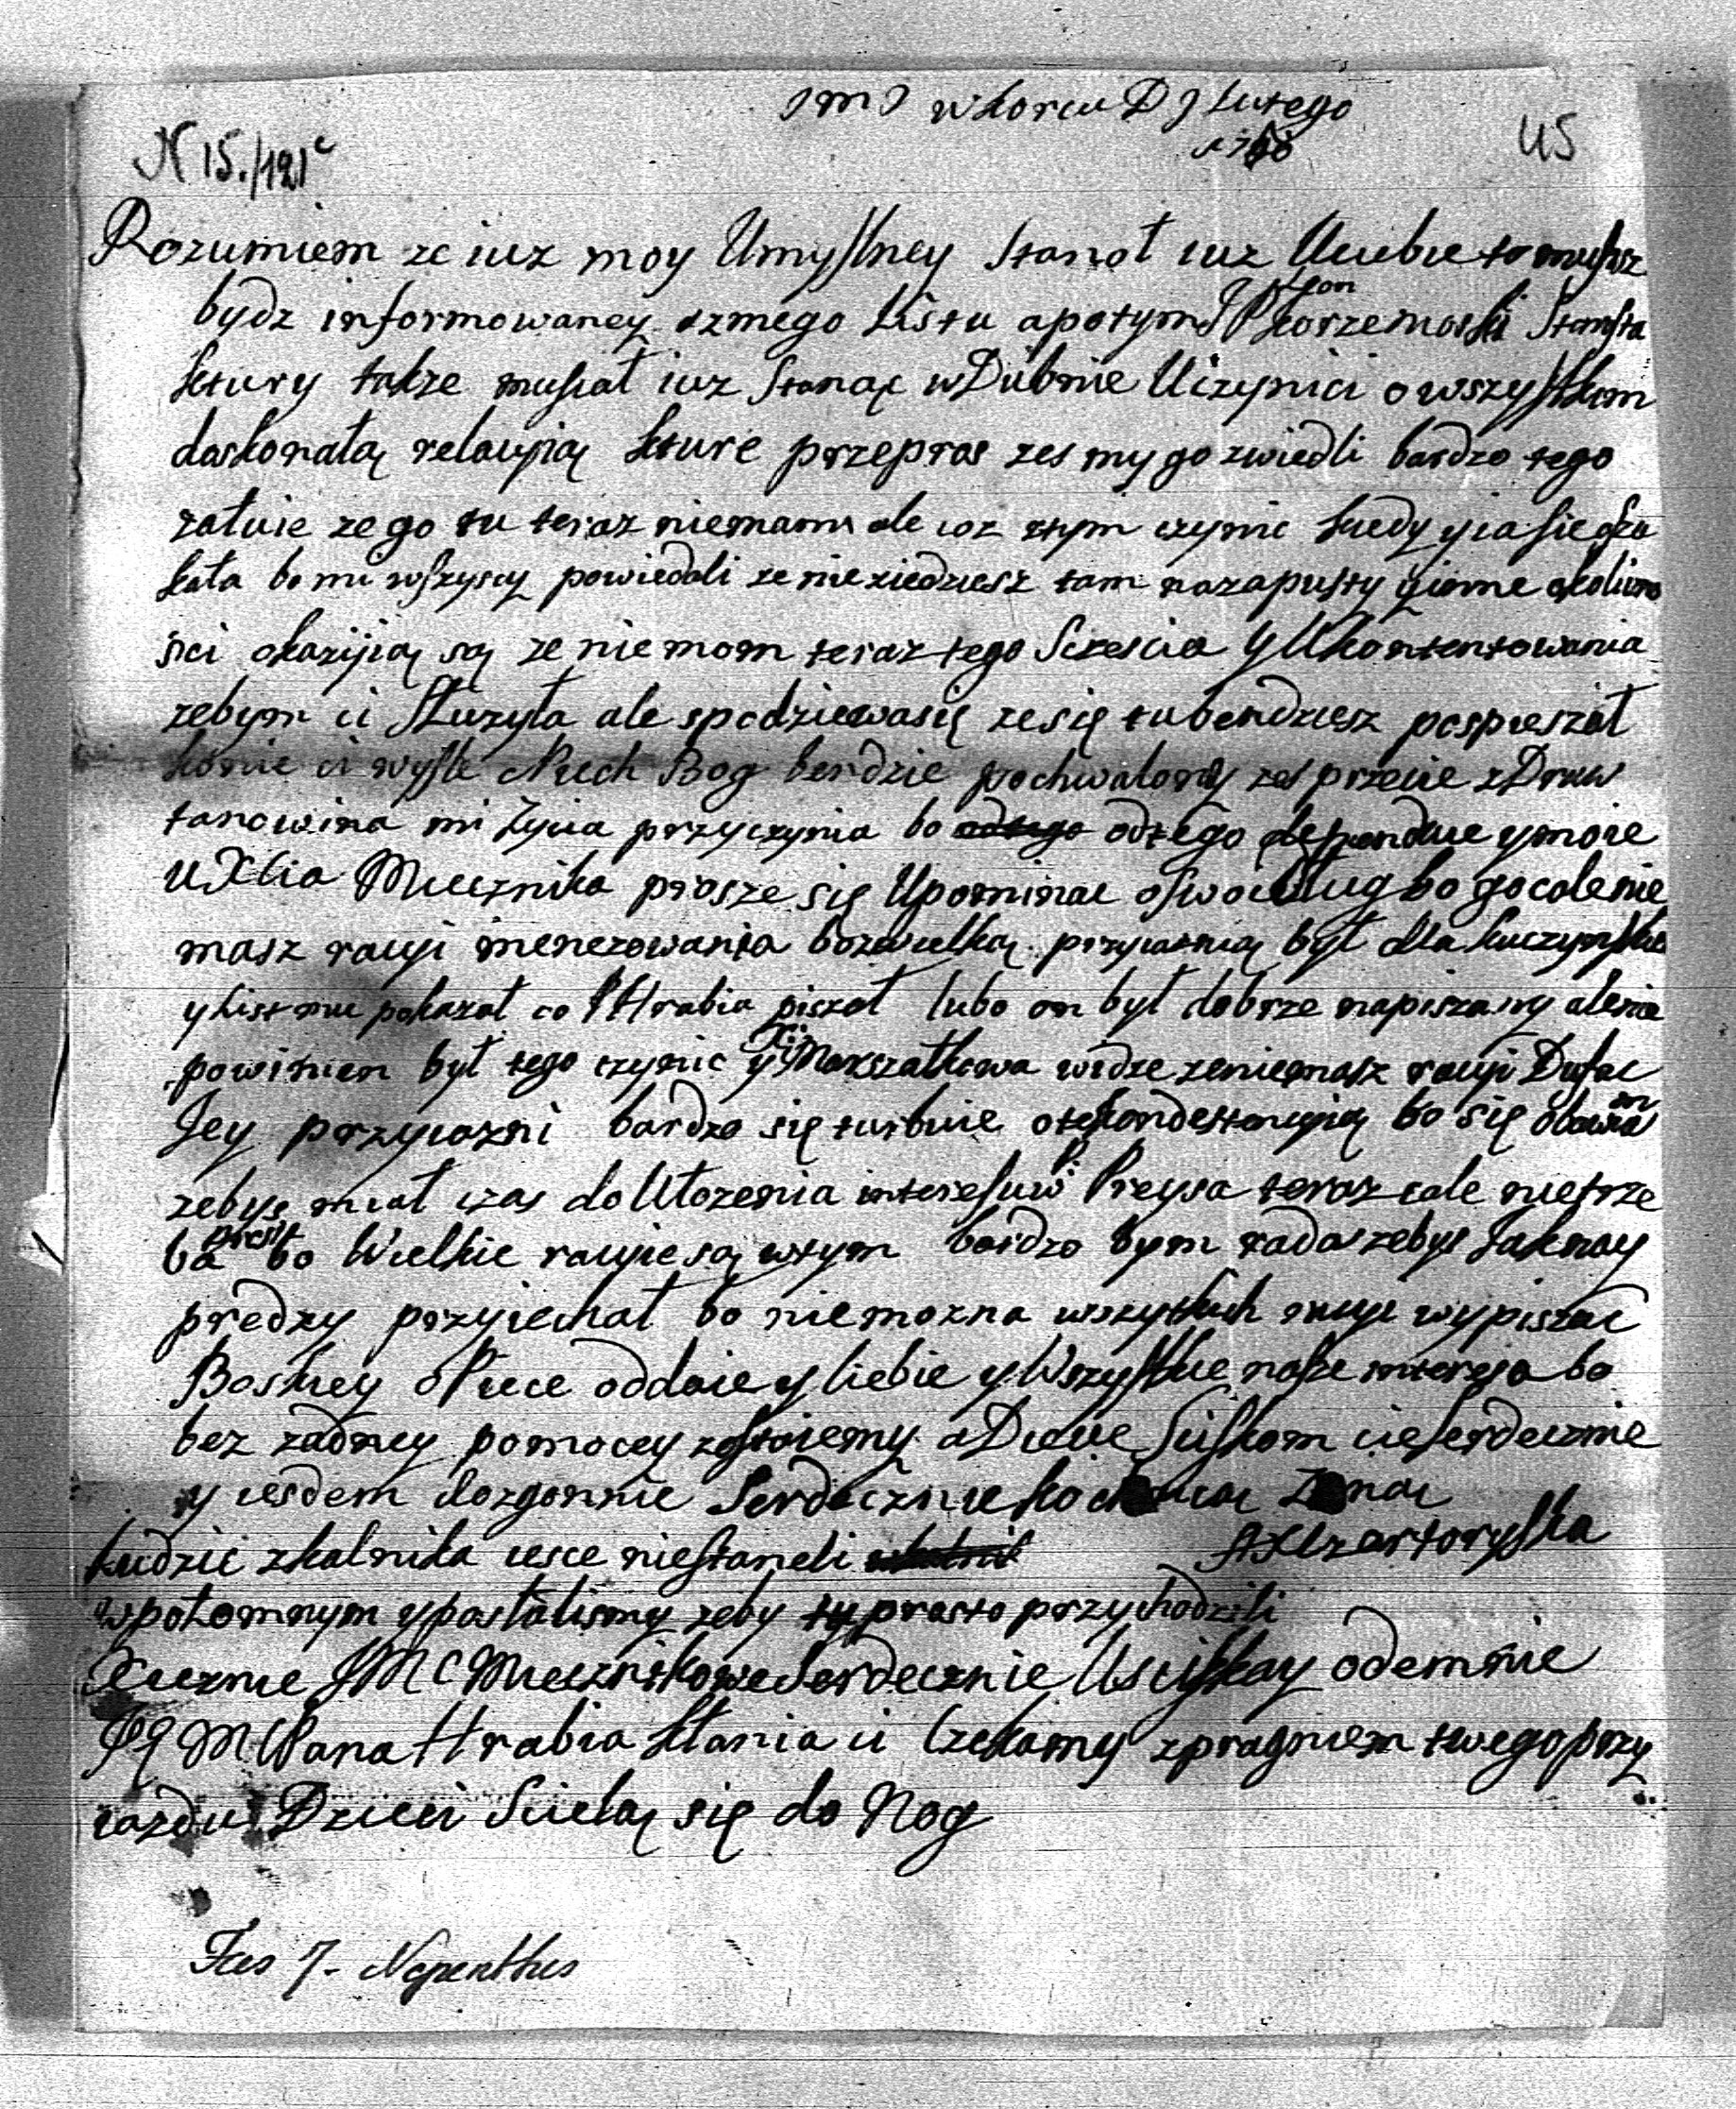 JMJ w Korcu D J Lutego
1768
45
N 15./121c
Rozumiem ze iuz moy Umyslney stanoł iuz Uciebie to musisz
bydz informowaney zmego Listu apotym JP Korzenioski
ktury takze musiał iuz stanąc w Dubnie Uczynici o wszystkim
doskonałą relacyią kture przepros zesmy go zwiedli bardzo tego
załuie ze go tu teraz niemam ale coz stym czynic kiedy y ia sie oszu
kała bo mi wszyscy powiedali ze nieziedziesz tam nazapusty y ione okoliczno
sci okazyią są ze niemom teraz tego Sczescia y Ukontentowania
zebym ci słuzyła ale spodziewasię ze się tu bendziesz pospieszoł
konie ci wysle Niech Bog bendzie pochwalony zes przecie zDruw
ta nowina mi zycia przyczynia bo odtego dependuie y moie
UXcia Miecznika prosze się Upominac oswoi Dług bo go cole nie
masz racyi menezowania bozwielką przyiaznią był dla kuczynskie
y List mu pokazał co P Hrabia piszoł lubo on był dobrze napiszany ale nie
powinien był tego czynic y Xi Marszałkowa widze zeniemasz racyi Dufac
Jey przyiazni bardzo się turbuie otę kondestencyią bo się obawiam
zebys miał czas do Ułozenia interesuw P: Preysa teraz cale nietrze
ba bo Wielkie racyie są wtym bardzo bym rada zebys Jaknay
prędzy przyiechał bo niemozna wszystkich racyi wypiszac
Boskiey oPiece oddaie y Ciebie y Wszystkie nasze interesa bo
bez zadney pomocy zostaiemy aDieue Sciskom cie serdecznie
y iesdem dozgonnie Serdecznie kochaiącą Zoną
AXCzartoryska
Ludzie zkalnika iesce niestaneli
wpołomnym y posłalismy zeby ty prosto przychodzili
Xiezne JMC Miecznikowe Serdecznie Usciskay odemnie
Pana Hrabia kłania ci Czekamy zpragniem twego przy
iazdu Dzieci Scielą się do Nog
Fas 7. Nepenthes